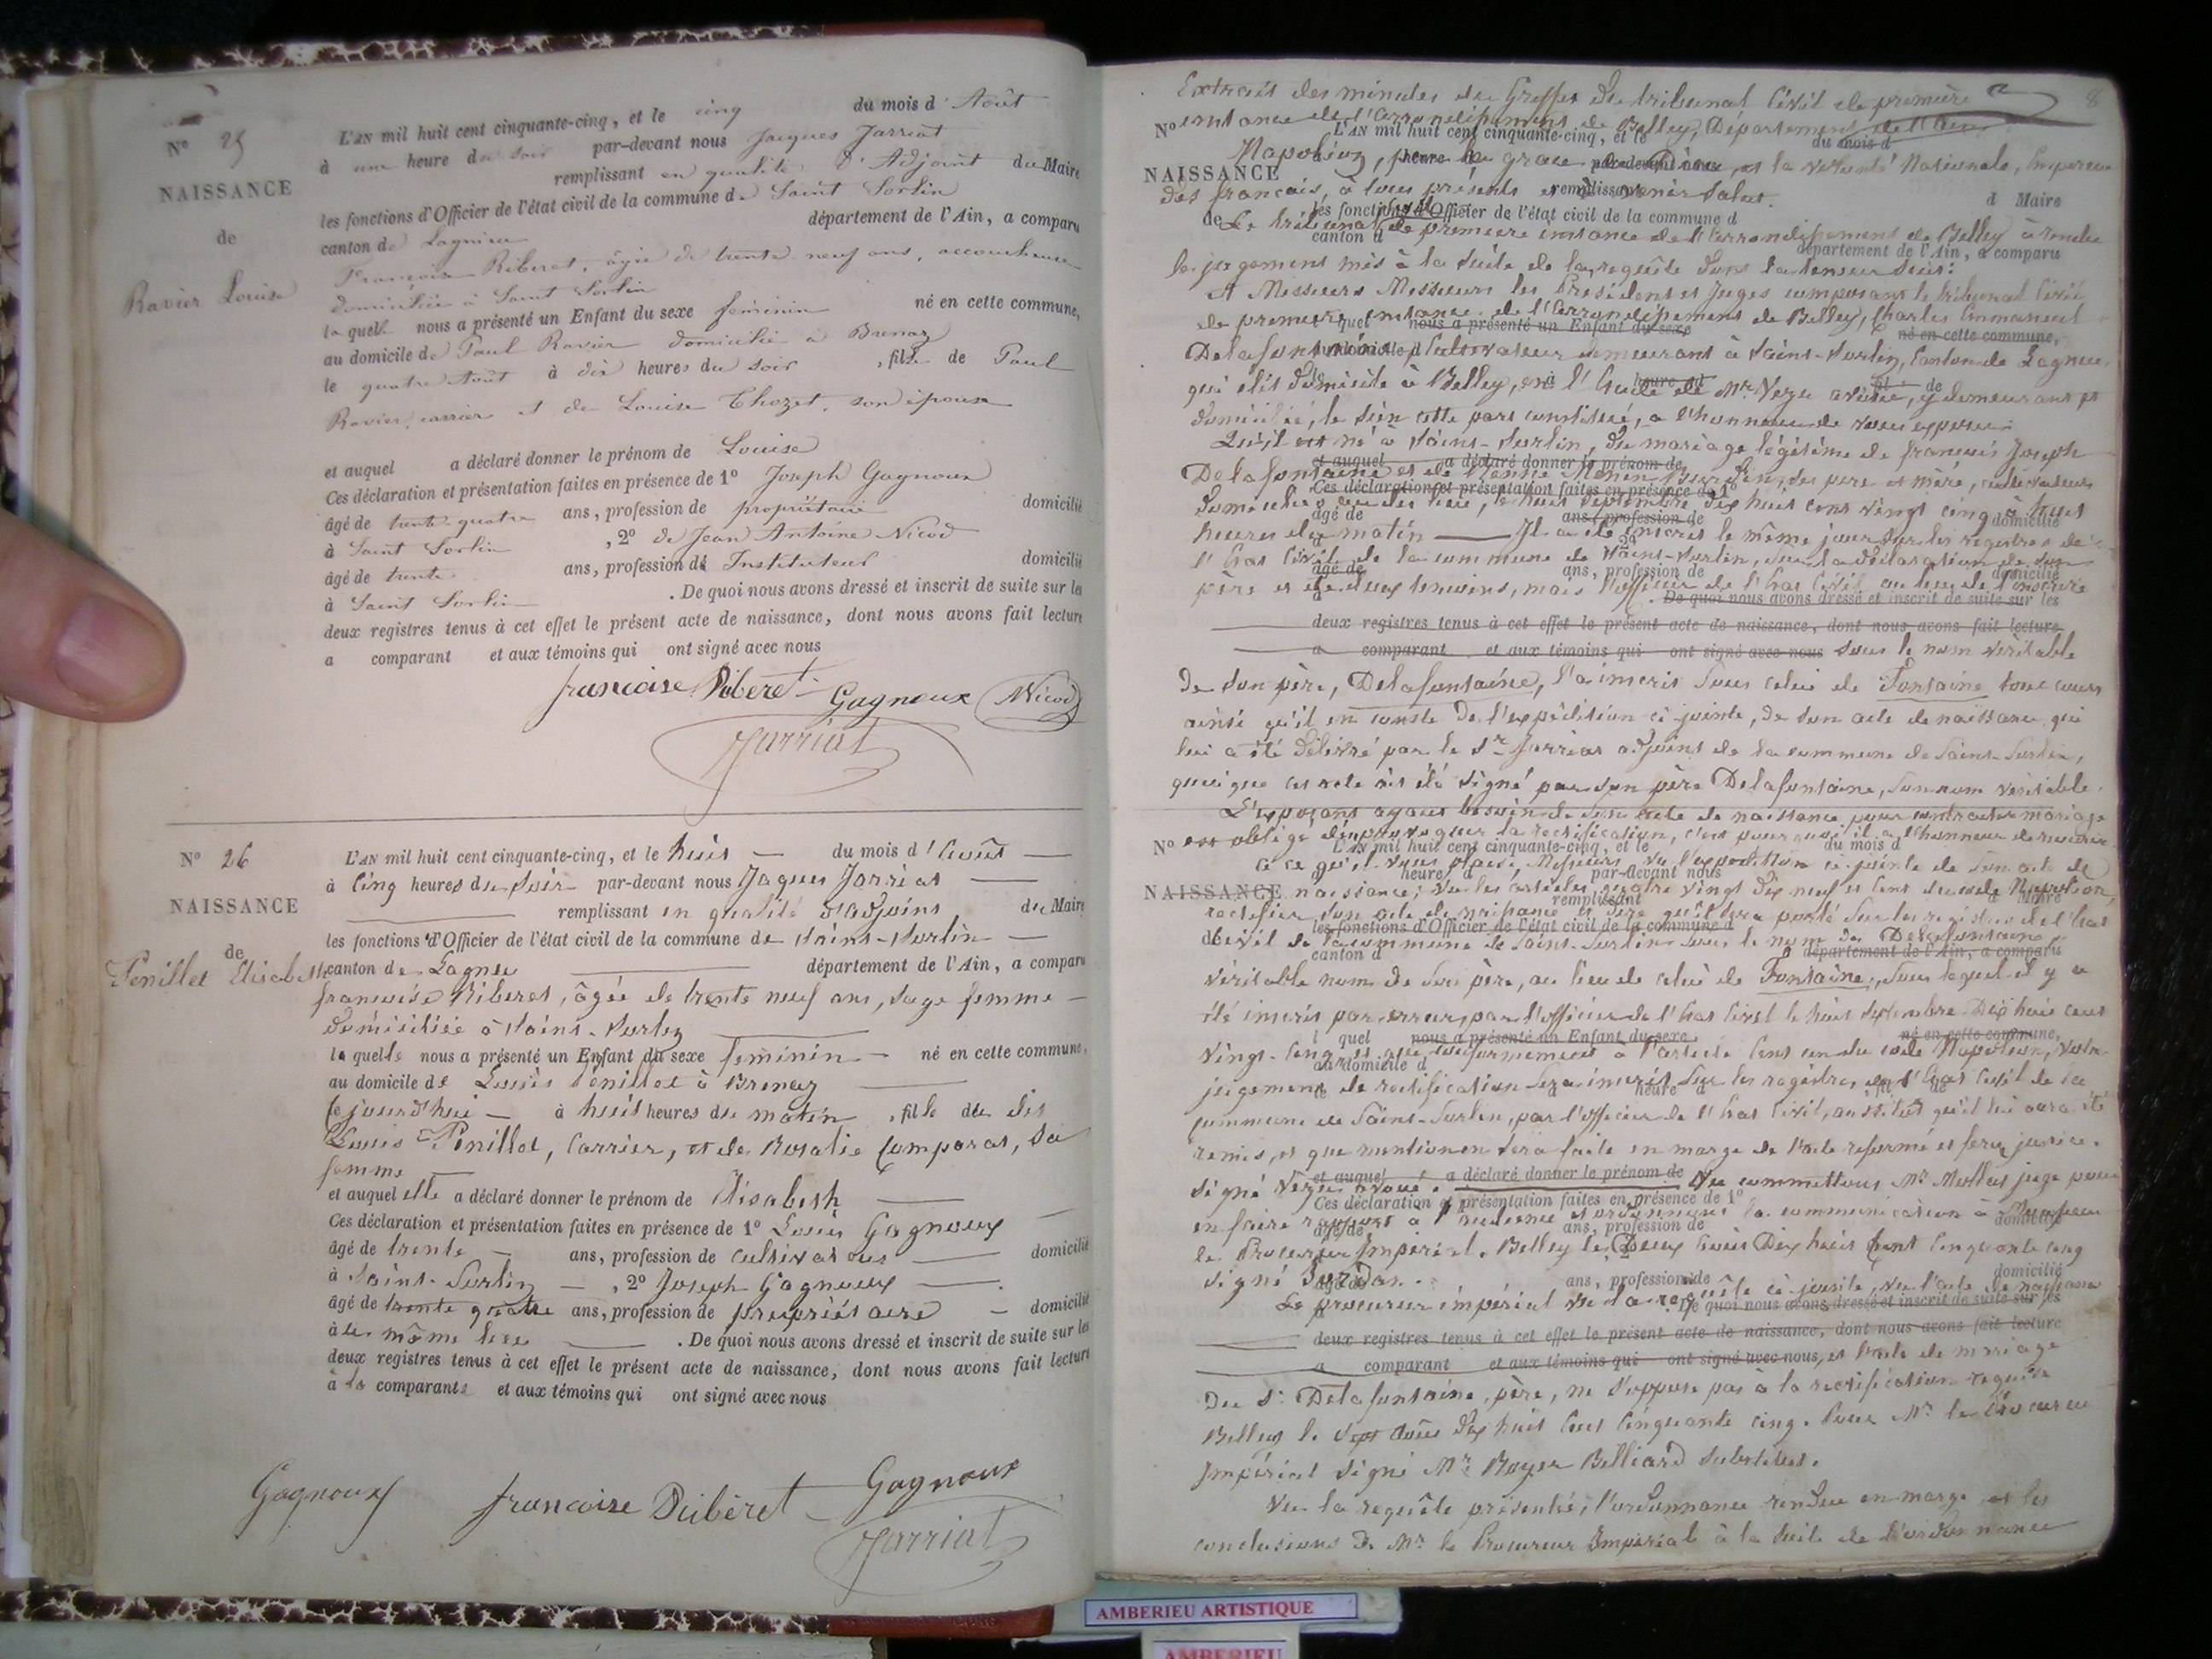 N° 25
NAISSANCE
de
Ravier Louise
L'AN mil huit cent cinquante-cinq, et le cinq du mois d'Août
à une heure du soir par-devant nous Jacques Jarriat
remplissant en qualité d'Adjoint du Maire
les fonctions d'Officier de l'état civil de la commune de Saint Sorlin
canton de Lagnieu département de l'Ain, a comparu
Françoise Riberet, âgée de trente neuf ans, accoucheuse
domiciliée à Saint Sorlin
la quelle nous a présenté un Enfant du sexe féminin né en cette commune,
au domicile de Paul Ravier domicilié à Brenaz
le quatre Août à dix heures du soir, fille de Paul
Ravier, carrier et de Louise Chozet, son épouse
et auquel a déclaré donner le prénom de Louise
Ces déclaration et présentation faites en présence de 1° Joseph Gagnoux
âgé de trente-quatre ans, profession de propriétaire domicilié
à Saint Sorlin, 2° de Jean Antoine Nicod
âgé de trente ans, profession de Instituteur domicilié
à Saint Sorlin. De quoi nous avons dressé et inscrit de suite sur les
deux registres tenus à cet effet le présent acte de naissance, dont nous avons fait lecture
a comparant et aux témoins qui ont signé avec nous
francoise Riberet Gagnoux Nicod
Jarriat
N° 26
NAISSANCE
de
Penillet Elisabeth
L'AN mil huit cent cinquante-cinq, et le huit du mois d'Août
à Cinq heures du Soir par-devant nous Jaques Jarriat
remplissant en qualité d'Adjoint du Maire
les fonctions d'Officier de l'état civil de la commune de Saint-Surlin
canton de Lagnieu département de l'Ain, a comparu
françoise Riberet, âgée de trente neuf ans, sage femme
domiciliée à Saint-Surlin
la quelle nous a présenté un Enfant du sexe féminin né en cette commune,
au domicile de Louis Penillet à Brenaz
ce jourd'hui à huit heures du matin, fille du dit
Louis Penillet, Carrier, et de Rosalie Comparat, sa
femme
et auquel elle a déclaré donner le prénom de Elisabeth
Ces déclaration et présentation faites en présence de 1° Louis Gagnoux
âgé de trente ans, profession de cultivateur domicilié
à Saint-Surlin, 2° Joseph Gagnoux
âgé de trente quatre ans, profession de propriétaire domicilié
à le même lieu. De quoi nous avons dressé et inscrit de suite sur les
deux registres tenus à cet effet le présent acte de naissance, dont nous avons fait lecture
à la comparante et aux témoins qui ont signé avec nous
Gagnoux francoise Riberet Gagnoux
Jarriat
8
Extrait des minutes du Greffe du tribunal Civil de première
instance de l'Arrondissement de Belley, Département de l'Ain
Napoléon, par la grace de Dieu, et la volonté Nationale, Empereur
des français, à tous présents et à venir Salut.
Le tribunal de première instance de l'Arrondissement de Belley à rendu
le jugement mis à la suite de la requête dont la teneur suit:
A Messieurs Messieurs les Président et Juges composant le tribunal Civil
de première instance de l'Arrondissement de Belley, Charles Emmanuel
Delafontaine, Cultivateur demeurant à Saint-Surlin, Canton de Lagnieu,
qui élit domicile à Belley, en l'Etude de Mr Vezu avoué, y demeurant et
domicilié, le sien cette part constitué, a l'honneur de vous exposer:
Qu'il est né à Saint-Surlin, du mariage légitime de françois Joseph
Delafontaine et de père et mère, cultivateurs
domiciliés au dit lieu, le huit septembre dix huit cent vingt cinq à huit
heures du matin Il a été inscrit le même jour sur les registres de
l'Etat Civil de la commune de Saint-Surlin, sur la déclaration de son
père et de deux témoins, mais l'officier de l'Etat Civil au lieu de l'inscrire
sous le nom véritable
de son père, Delafontaine, l'a inscrit sous celui de Fontaine tout court
ainsi qu'il en conste de l'expédition ci-jointe, de son acte de naissance qui
lui a été délivré par le Sr Jarriat adjoint de la commune de Saint-Surlin,
quoique cet acte ait été signé par son père Delafontaine, son nom véritable.
L'exposant ayant besoin de son acte de naissance pour contracter mariage
est obligé d'en provoquer la rectification, c'est pourquoi il a l'honneur de recourir
à ce qu'il vous plaise, Messieurs, vu l'expédition ci-jointe de son acte de
naissance; vu les articles quatre vingt dix neuf et Cent du code Napoléon,
rectifier son acte de naissance et dire qu'il sera porté sur les registres de l'Etat
Civil de la commune de Saint-Surlin sous le nom de Delafontaine,
véritable nom de son père, au lieu de celui de Fontaine, sous lequel il y a
été inscrit par erreur, par l'officier de l'Etat Civil le huit septembre Dix huit cent
vingt-cinq et que conformément à l'article Cent un du code Napoléon, votre
jugement de rectification sera inscrit sur les registres de l'Etat Civil de la
commune de Saint-Surlin, par l'officier de l'Etat Civil, aussitôt qu'il lui aura été
remis, et que mention en sera faite en marge de l'acte reformé et ferez justice.
Signé Vezu avoué. Nu commettons Mr Mollet juge pour
en faire rapport à l'audience et ordonnons la communication à Monsieur
le Procureur Impérial. Belley le Deux Août Dix huit Cent Cinquante cinq
signé
Le procureur impérial vu la requête ci-jointe, vu l'acte de naissance
et l'acte de mariage
Du Sr Delafontaine, père, ne s'oppose pas à la rectification requise
Belley le sept Août Dix huit Cent Cinquante cinq. Pour Mr le Procureur
Impérial signé Mr Royer Belliard Substitut.
Vu la requête présentée, l'ordonnance rendue en marge et les
conclusions de Mr le Procureur Impérial à la suite de l'ordonnance
AMBERIEU ARTISTIQUE
AMBERIEU